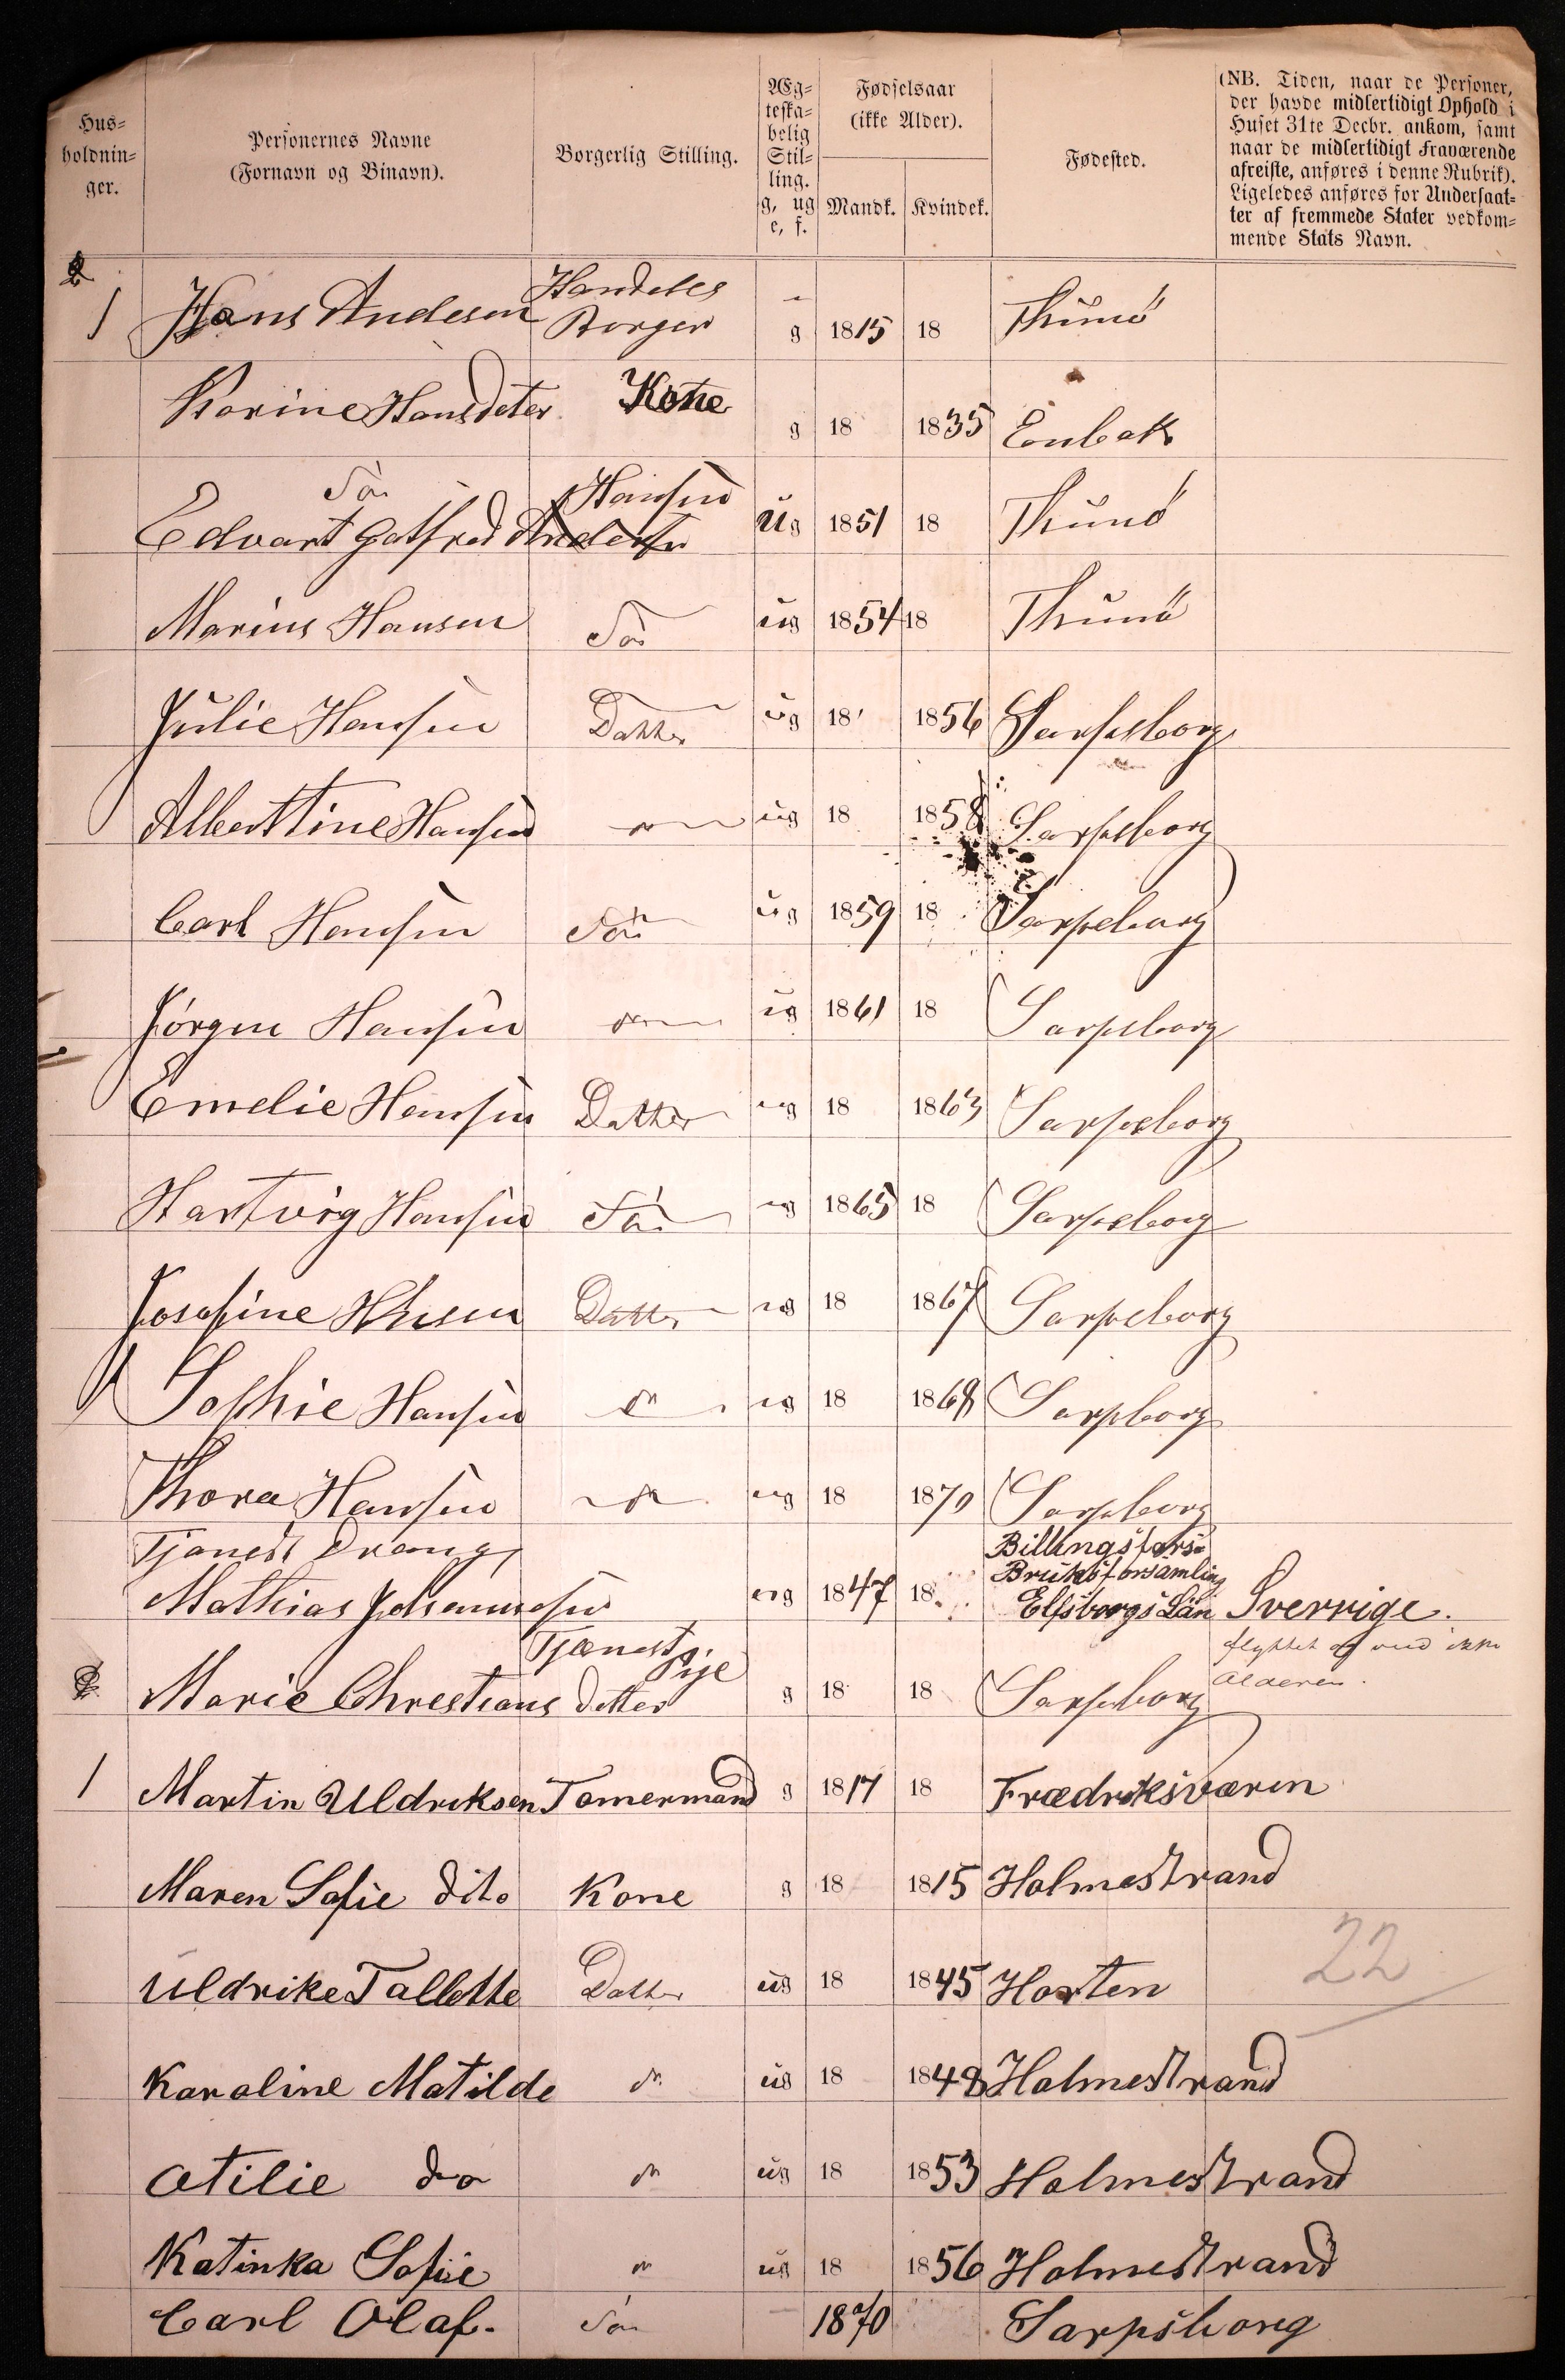 Hus-
holdnin-
ger.
Personernes Navne
(Fornavn og Binavn).
Borgerlig Stilling.
Æg-
teska-
belig
Stil-
ling.
g, ug
e, f.
Fødselsaar
(ikke Alder).
Mandk. Kvindek.
Fødested.
(NB. Tiden, naar de Personer,
der havde midlertidigt Ophold i
Huset 31te Decbr. ankom, samt
naar de midlertidigt Fraværende
afreiste, anføres i denne Rubrik).
Ligeledes anføres for Undersaat-
ter af fremmede Stater vedkom-
mende Stats Navn.
Handels
1 Hans Andesen Borger g 1815 18 Thunö
Karine Hansdeter Kone g 18 1835 Enbak
Søn Hansen
Edvart Gotfred Andersen ug 1851 18 Thunö
Marius Hansen Søn ug 1854 18 Thunö
Julie Hansen Datter ug 18 1856 Sarpsborg
Alberttine Hansen do ug 18 1858 Sarpsborg
Carl Hansen Søn ug 1859 18 Sarpsborg
Jörgen Hansen do ug 1861 18 Sarpsborg
Emelie Hansen Datter ug 18 1863 Sarpsborg
Hartvig Hansen Søn ug 1865 18 Sarpsborg
Josefine Hnsen Datter ug 18 1867 Sarpsborg
Sophie Hansen do ug 18 1868 Sarpborg
Thora Hansen do ug 18 1870 Sarpsborg
Tjanest Dräng Billingsfors
Bruksforsamling
Mathias Johannesen ug 1847 18 Elfsborgs Län Sverrige.
Tjænestpige flyttet og ved ikke
Marie Chrestians detter g 18 18 Sarpsborg Alderen.
1 Martin Uldriksen Tomermand g 1817 18 Frædriksværn
Maren Sofie dito Kone g 18 1815 Holmestrand
Uldrike Tallette Datter ug 18 1845 Horten
22
Karoline Matilde do ug 18 1848 Holmestrand
Otilie do do ug 18 1853 Holmestrand
Katinka Sofie do ug 18 1856 Holmestrand
Carl Olaf. Søn 1870 Sarpsborg